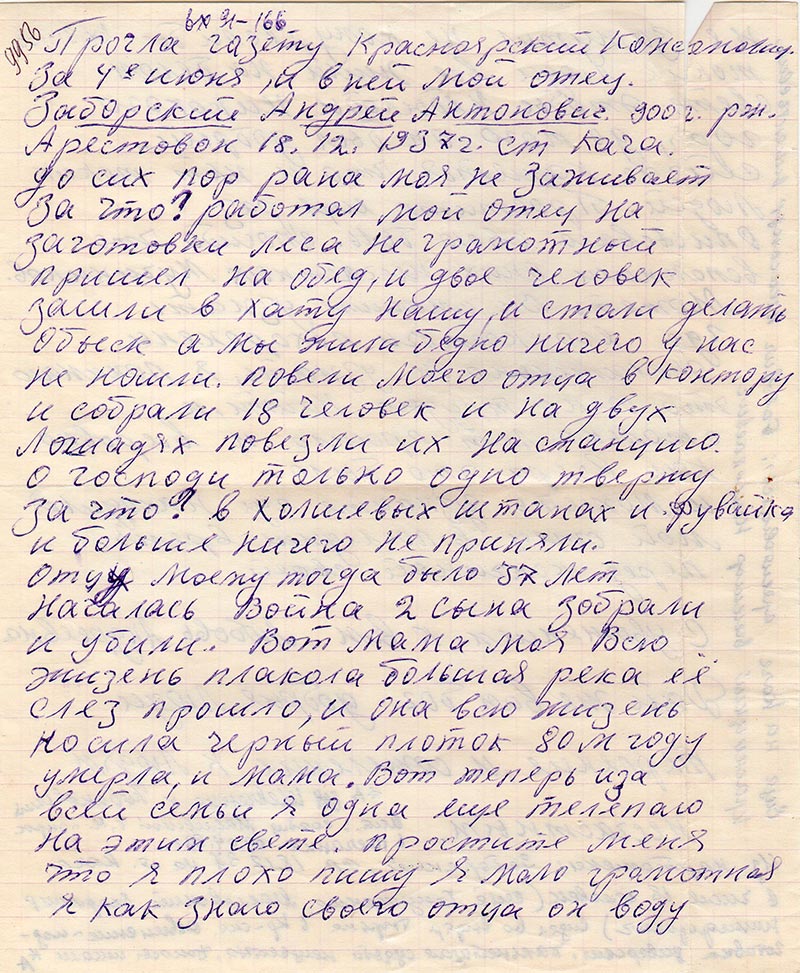 9956
вх 91-166
Прочла газету Красноярский Комсомолец.
За 4е июня, и в ней мой отец.
Заборский Андрей Антонович. 900г. рж.
Арестован 18. 12. 1937г. ст Кача.
до сих пор рана моя не заживает
За что? работал мой отец на
заготовки леса не грамотный
пришел на обед, и двое человек
зашли в хату нашу, и стали делать
обыск а мы жили бедно ничего у нас
не нашли. повели моего отца в контору
и собрали 18 человек и на двух
лошадях повезли их на станцию.
О господи только одно твержу
за что? в холшевых штанах и фувайка
и больше ничего не приняли.
отцу моему тогда было 37 лет
Началась Война 2 сына зобрали
и убили. Вот мама моя всю
жизень плакола большая река её
слез прошло, и она всю жизень
носила черный плоток 80м году
умерла, и мама. Вот теперь иза
всей семьи я одна еще телепаю
на этим свете. простите меня
что я плохо пишу я мало грамотная
я как знаю своего отца он воду